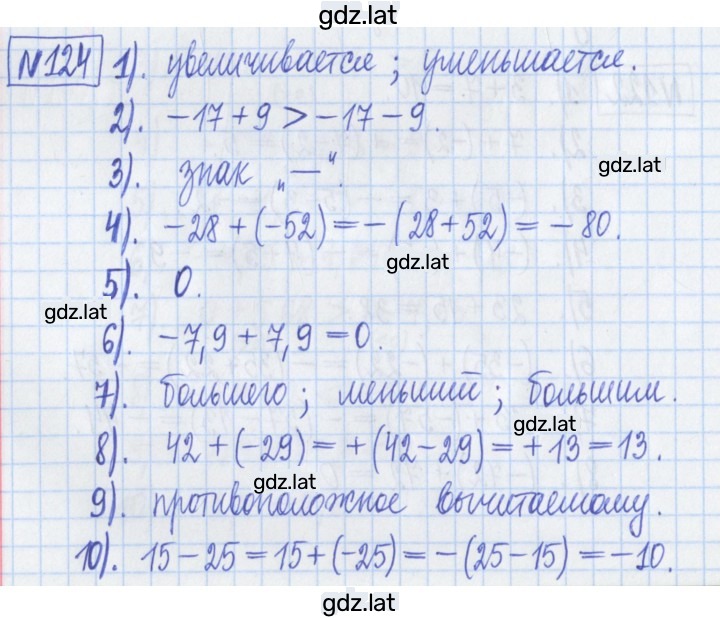 gdz.lat
№124 1). увеличивается; уменьшается.
2). -17+9 > -17-9.
3). знак „—". gdz.lat
4). -28+(-52)=-(28+52)=-80.
gdz.lat
5). 0.
gdz.lat
6). -7,9+7,9=0.
7). большего; меньший; большим.
gdz.lat
8). 42+(-29)=+(42-29)=+13=13.
gdz.lat
9). противоположное вычитаемому.
10). 15-25=15+(-25)=-(25-15)=-10.
gdz.lat